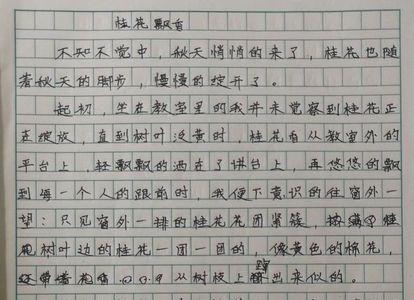 桂花飘香
不知不觉中，秋天悄悄的来了，桂花也随
着秋天的脚步，慢慢的绽开了。
起初，坐在教室里的我并未觉察到桂花正
在绽放，直到树叶泛黄时，桂花香从教室外的
平台上，轻飘飘的洒在了讲台上，再悠悠的飘
到每一个人的跟前时，我便下意识的往窗外一
望：只见窗外一排的桂花花团紧簇，
树叶边的桂花一团一团的，像黄色的棉花，
从树枝上蹿出来似的。